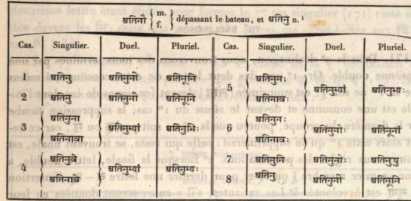 अतिनौ { m. f. } dépassant le bateau, et अतिनु n.¹
Cas. Singulier. Duel. Pluriel.
1 अतिनु अतिनुनी अतिनूनि
2 अतिनु अतिनुनी अतिनूनि
3 अतिनुना अतिनुभ्यां अतिनुभिः
अतिनावा
4 अतिनुने अतिनुभ्यां अतिनुभ्यः
अतिनावे
Cas. Singulier. Duel. Pluriel.
5 अतिनुनः अतिनुभ्यां अतिनुभ्यः
अतिनावः
6 अतिनुनः अतिनुनोः अतिनूनां
अतिनावः
7 अतिनुनि अतिनुनोः अतिनुषु
8 अतिनु अतिनुनी अतिनूनि